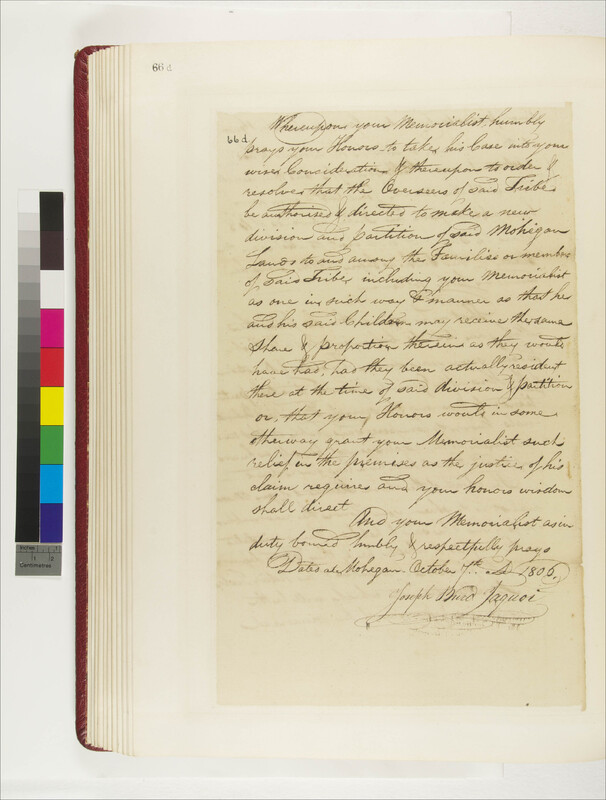 66 d
66 d
Whereupon your Memorialist humbly
prays your Honors to take his Case into your
wise Concideration & thereupon to order &
resolve that the Overseers of said Tribe
be authorised & directed to make a new
division and partition of said Mohegan
Lands to and among the Families or members
of said Tribe, including your Memorialist
as one in such way & manner as that he
and his said Children may receive the same
Share & proportion therein as they would
have had, had they been actually resident
there at the time of said division & partition
or, that your Honors would in some
other way grant your Memorialist such
relief in the premises as the justice of his
claim requires and your honors wisdom
shall direct
And your Memorialist as in
duty bound humbly & respectfully prays
Dated at Mohegan October 7th AD 1806.
Joseph Jaquoi
Inches 1 2
Centimetres